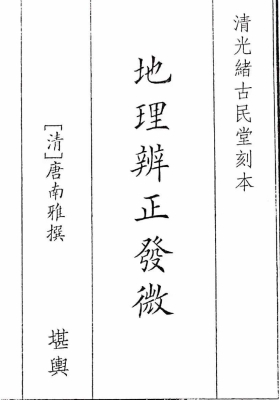 清光緒古民堂刻本
地理辨正發微
[清]唐南雅撰
堪輿